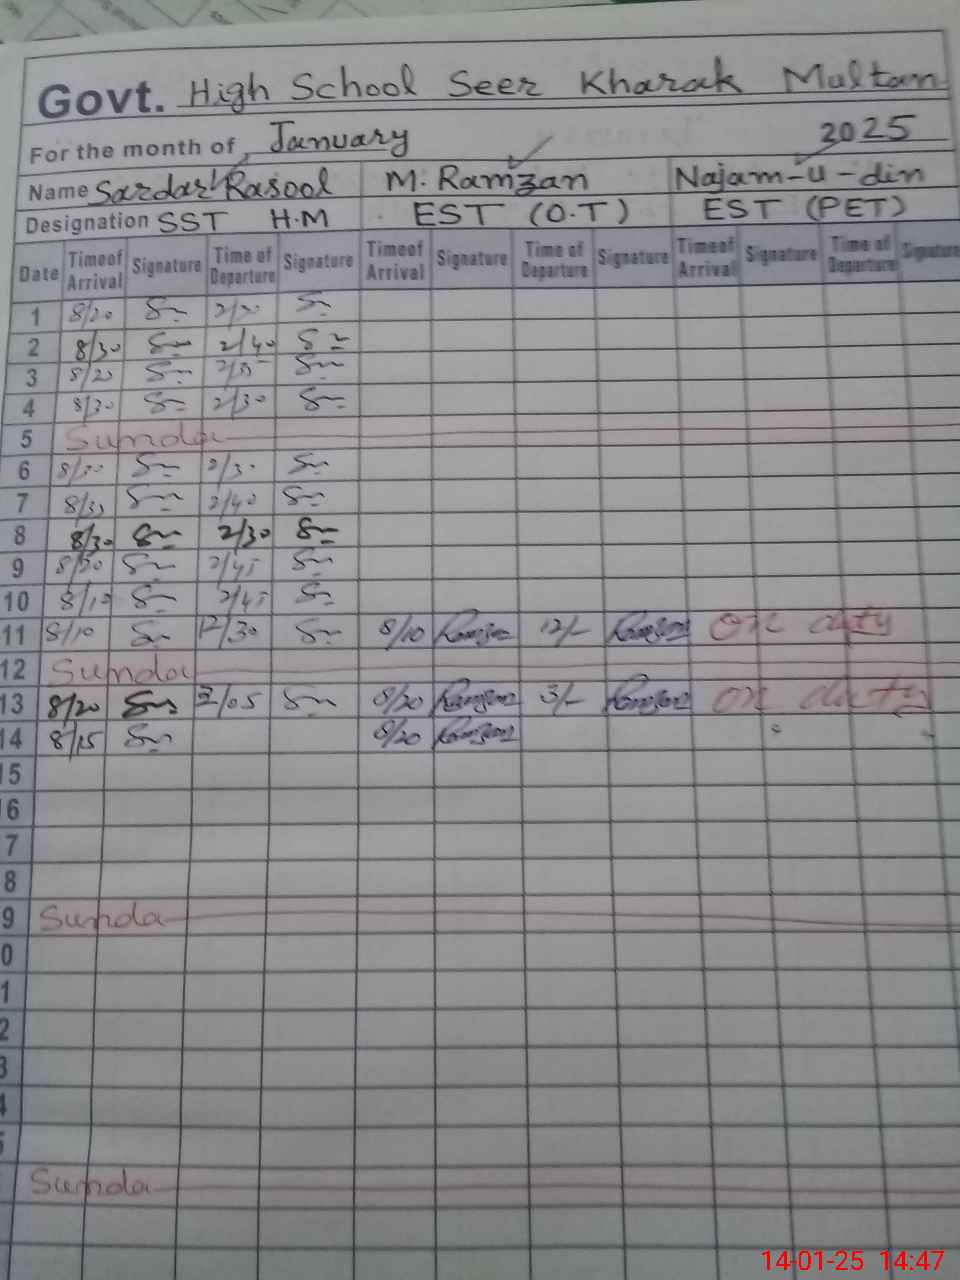 Govt. High School Seer Kharak Multan
For the month of January 2025
Name Sardar Rasool M. Ramzan Najam-u-din
Designation SST H.M EST (O.T) EST (PET)
Date Timeof Arrival Signature Time of Departure Signature Timeof Arrival Signature Time of Departure Signature Timeof Arrival Signature Time of Departure Signature
1 8/20
2 8/30 2/40
3 8/20
4 8/30 2/30
5 Sunda
6 2/30
7 8/30 2/40
8 8/30 2/30
9 2/45
10 8/10 2/45
11 8/10 12/30 8/10 Ramzan 12/- Ramzan On duty
12 Sunda
13 8/20 8/20 Ramzan 3/- Ramzan on duty
14 8/15 8/20 Ramzan
15
6
7
8
9 Sunda
0
1
2
3
4
5
Sunda
14-01-25 14:47